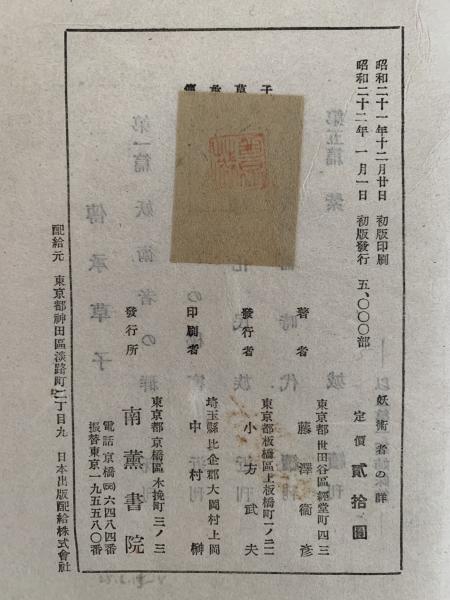 昭和二十一年十二月廿日　初版印刷
昭和二十二年　一月一日　初版發行　五、〇〇〇部
妖術者の群
定價　貳拾圓
東京都世田谷區經堂町四三
著者　藤澤衞彦
東京都板橋區上板橋町一ノ二一
發行者　小方武夫
埼玉縣比企郡大岡村上岡
印刷者　中村榊
東京都京橋區木挽町三ノ三
發行所　南薫書院
電話京橋(56)六四八四番
振替東京一九五五八〇番
配給元　東京都神田區淡路町二丁目九　日本出版配給株式會社